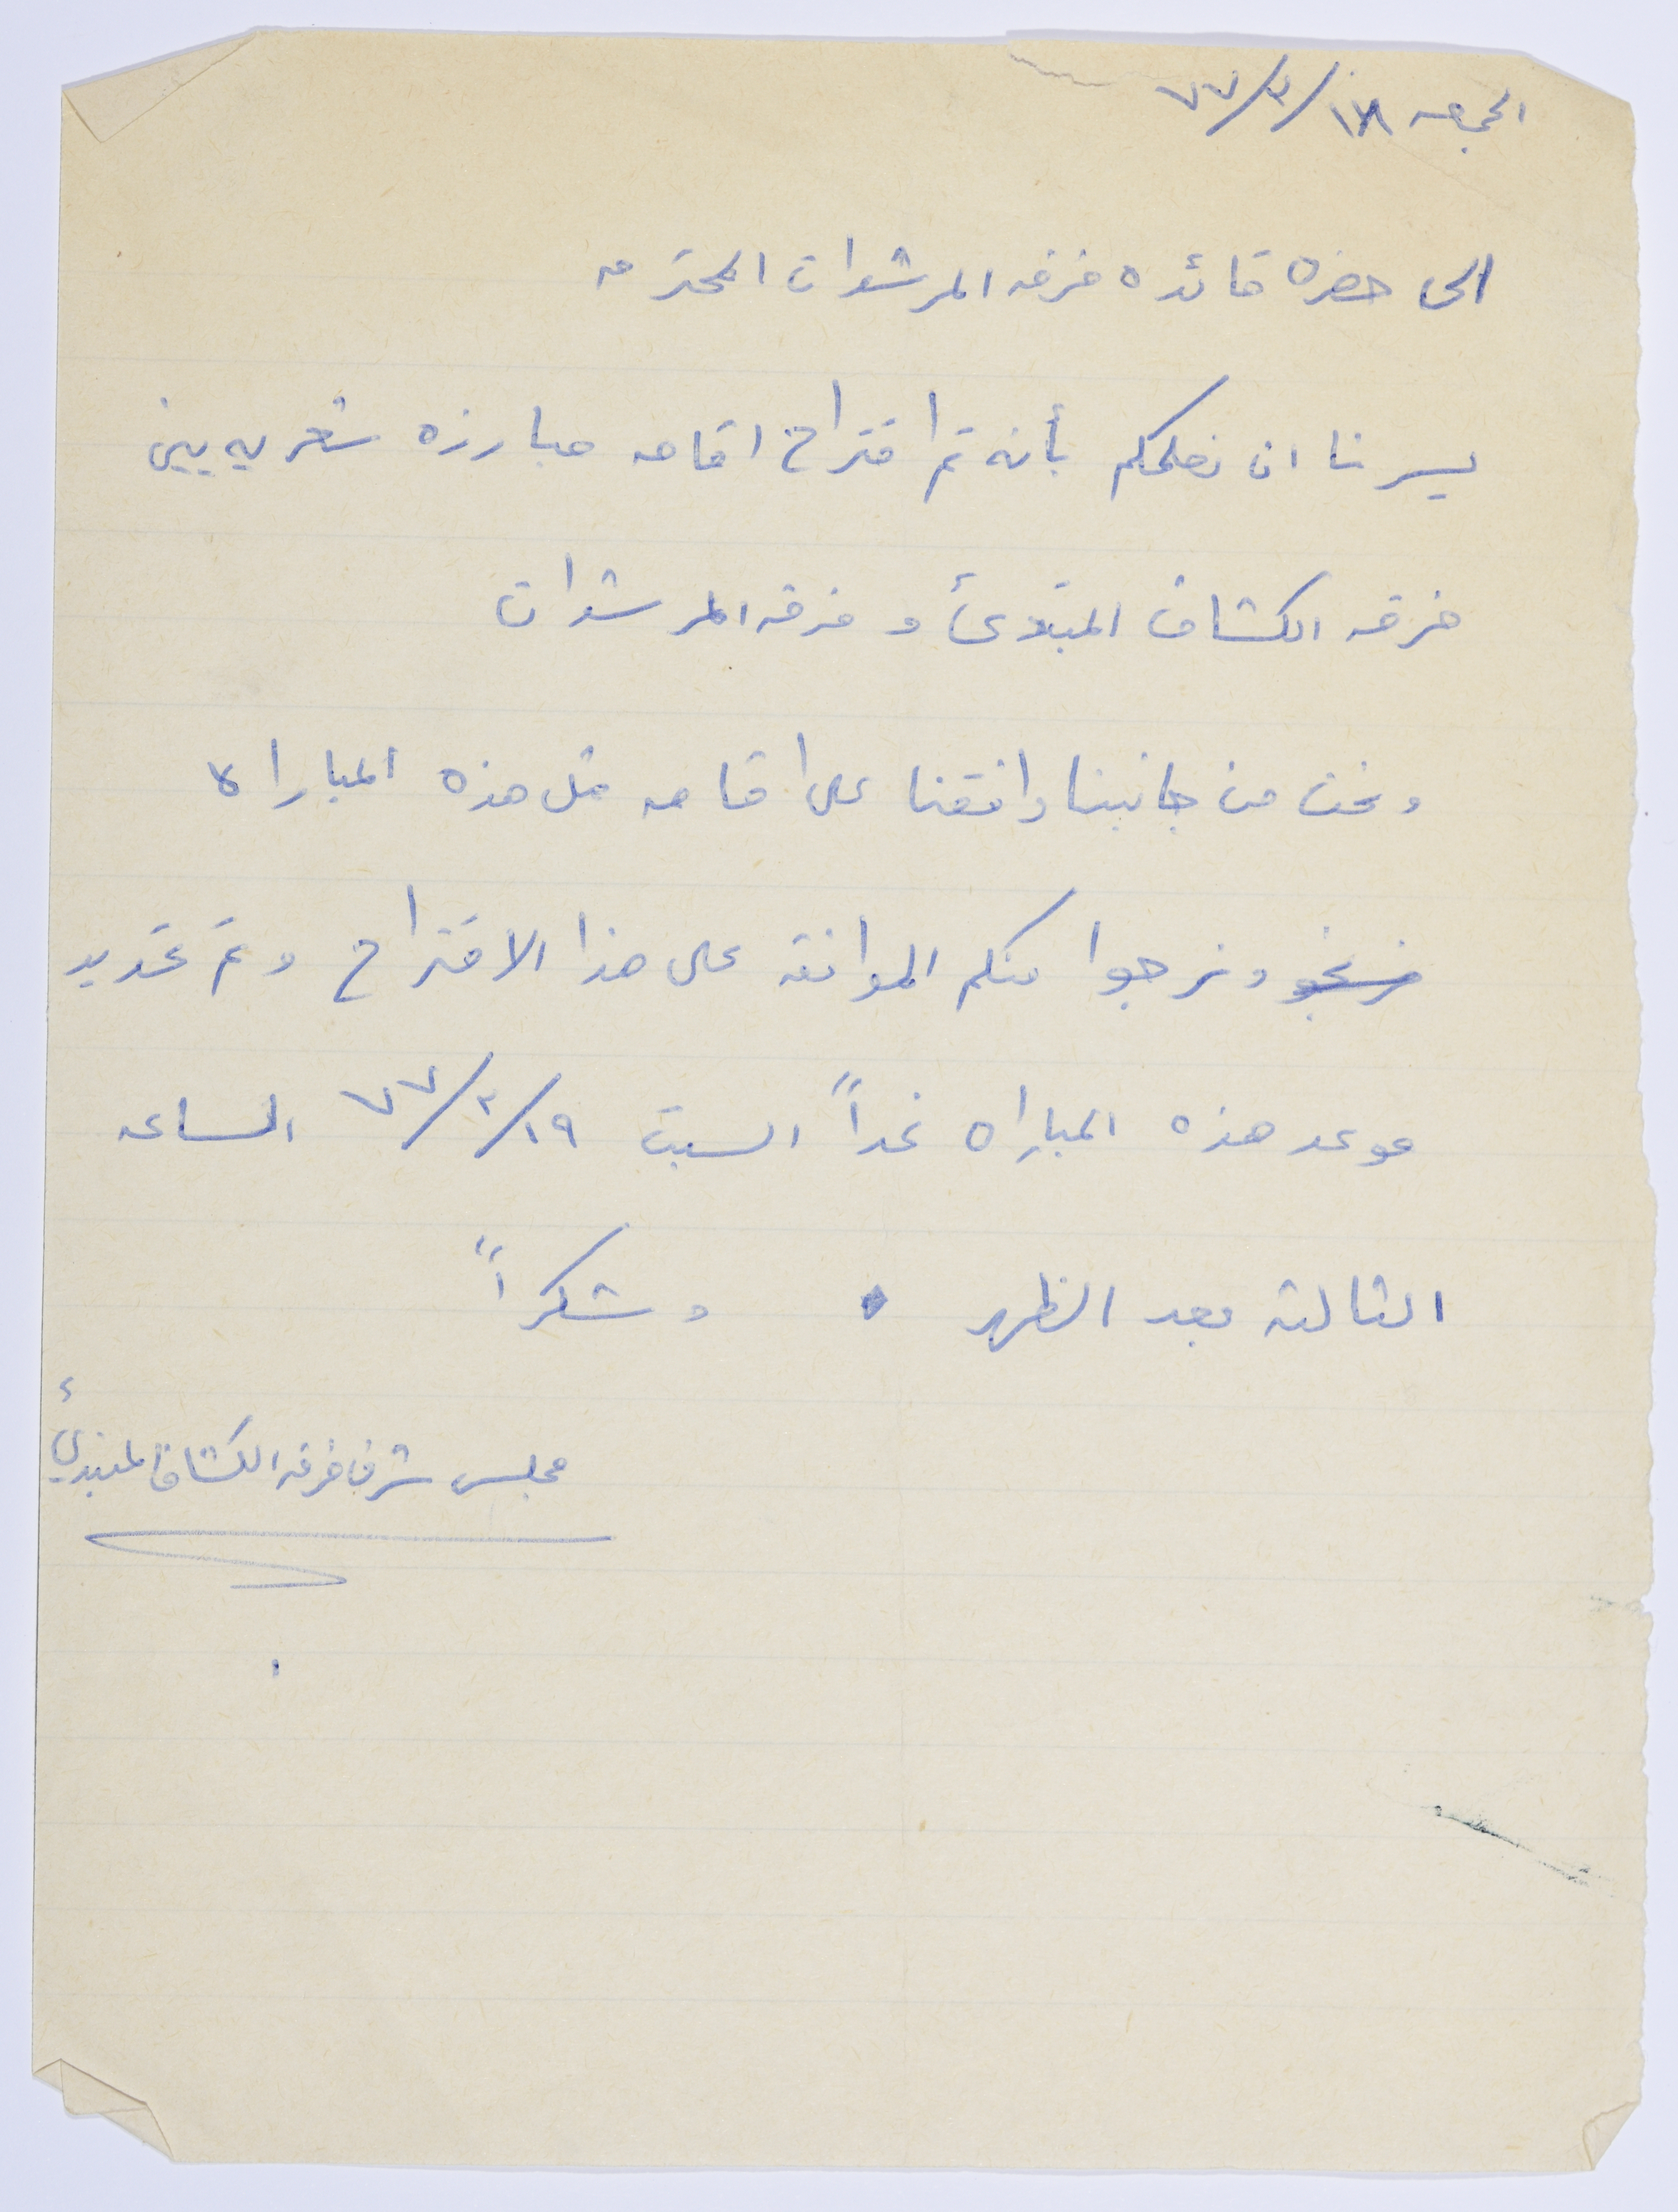 الجمعه ١٨/٢/٧٧
الى حضره قائده فرقه المرشدات المحترمه
يسرنا ان نعلمكم بأنه تم اقتراح اقامه مبارزه شعريه بين
فرقه الكشاف المبتدئ و فرقه المرشدات
ونحن من جانبنا وافقنا على اقامه مثل هذه المباراة
ونرجوا منكم الموافقه على هذا الاقتراح وتم تحديد
موعد هذه المباراه غداً السبت ١٩/٢/٧٧ الساعه
الثالثه بعد الظهر . وشكراً
مجلس شرف فرقه الكشاف المبتدئ